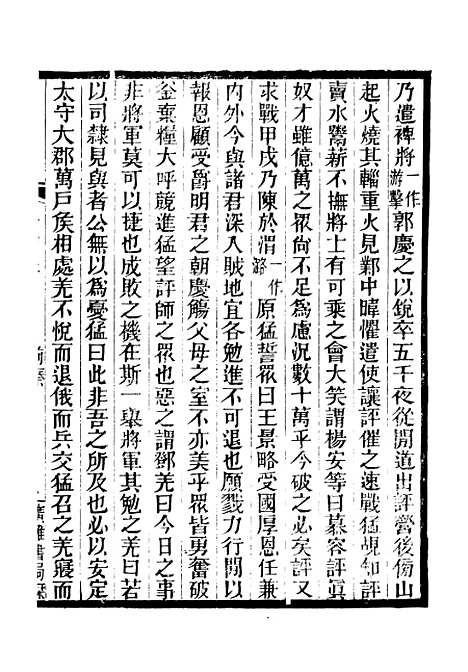 乃遣裨將一作游擊郭慶之以銳卒五千夜從閒道出評營後傍山
起火燒其輜重火見鄴中暐懼遣使讓評催之速戰猛覘知評
賣水鬻薪不撫將士有可乘之會大笑謂楊安等曰慕容評眞
奴才雖億萬之眾尙不足為慮況數十萬乎今破之必矣評又
求戰甲戌乃陳於渭一作潞原猛誓眾曰王景略受國厚恩任兼
內外今與諸君深入賊地宜各勉進不可退也願戮力行閒以
報恩顧受爵明君之朝慶觴父母之室不亦美乎眾皆勇奮破
釜棄糧大呼競進猛望評師之眾也惡之謂鄧羌曰今日之事
非將軍莫可以捷也成敗之機在斯一舉將軍其勉之羌曰若
以司隸見與者公無以為憂猛曰此非吾之所及也必以安定
太守大郡萬戶侯相處羌不悅而退俄而兵交猛召之羌寢而
前秦
廣雅書局